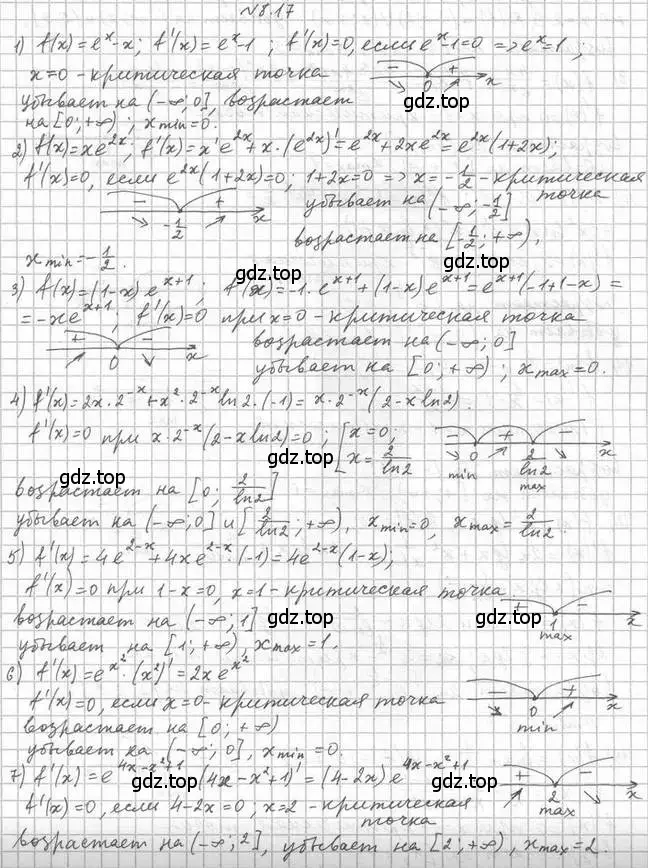 №8.17
1) f(x)=eˣ-x; f'(x)=eˣ-1; f'(x)=0, если eˣ-1=0 => eˣ=1;
x=0 - критическая точка
- + 0 x
убывает на (-∞; 0], возрастает
на [0; +∞); x min=0.
gdz.top
2) f(x)=xe²ˣ; f'(x)=x'e²ˣ+x·(e²ˣ)'=e²ˣ+2xe²ˣ=e²ˣ(1+2x);
f'(x)=0, если e²ˣ(1+2x)=0; 1+2x=0 => x=-1/2 - критическая
точка
- + -1/2 x
убывает на (-∞; -1/2]
gdz.top
возрастает на [-1/2; +∞),
x min=-1/2.
3) f(x)=(1-x)eˣ⁺¹; f'(x)=-1·eˣ⁺¹+(1-x)eˣ⁺¹=eˣ⁺¹(-1+1-x)=
=-xeˣ⁺¹; f'(x)=0 при x=0 - критическая точка
gdz.top
+ - 0 x
возрастает на (-∞; 0]
убывает на [0; +∞); x max=0.
gdz.top
4) f'(x)=2x·2⁻ˣ+x²·2⁻ˣ ln2·(-1)=x·2⁻ˣ(2-x ln2).
f'(x)=0 при x·2⁻ˣ(2-x ln2)=0; [x=0;
x=2/ln2
- + -
0 2/ln2 x
min max
gdz.top
возрастает на [0; 2/ln2]
убывает на (-∞; 0] и [2/ln2; +∞), x min=0, x max=2/ln2.
gdz.top
5) f'(x)=4e²⁻ˣ+4xe²⁻ˣ·(-1)=4e²⁻ˣ(1-x);
f'(x)=0 при 1-x=0, x=1 - критическая точка
+ - 1 x
max
возрастает на (-∞; 1]
gdz.top
gdz.top
убывает на [1; +∞), x max=1.
6) f'(x)=e^(x²)·(x²)'=2xe^(x²)
f'(x)=0, если x=0 - критическая точка
gdz.top
- + 0 x
min
возрастает на [0; +∞)
убывает на (-∞; 0], x min=0.
7) f'(x)=e^(4x-x²+1)·(4x-x²+1)'=(4-2x)e^(4x-x²+1)
gdz.top
f'(x)=0, если 4-2x=0; x=2 - критическая
точка
+ - 2 x
max
gdz.top
возрастает на (-∞; 2], убывает на [2; +∞), x max=2.